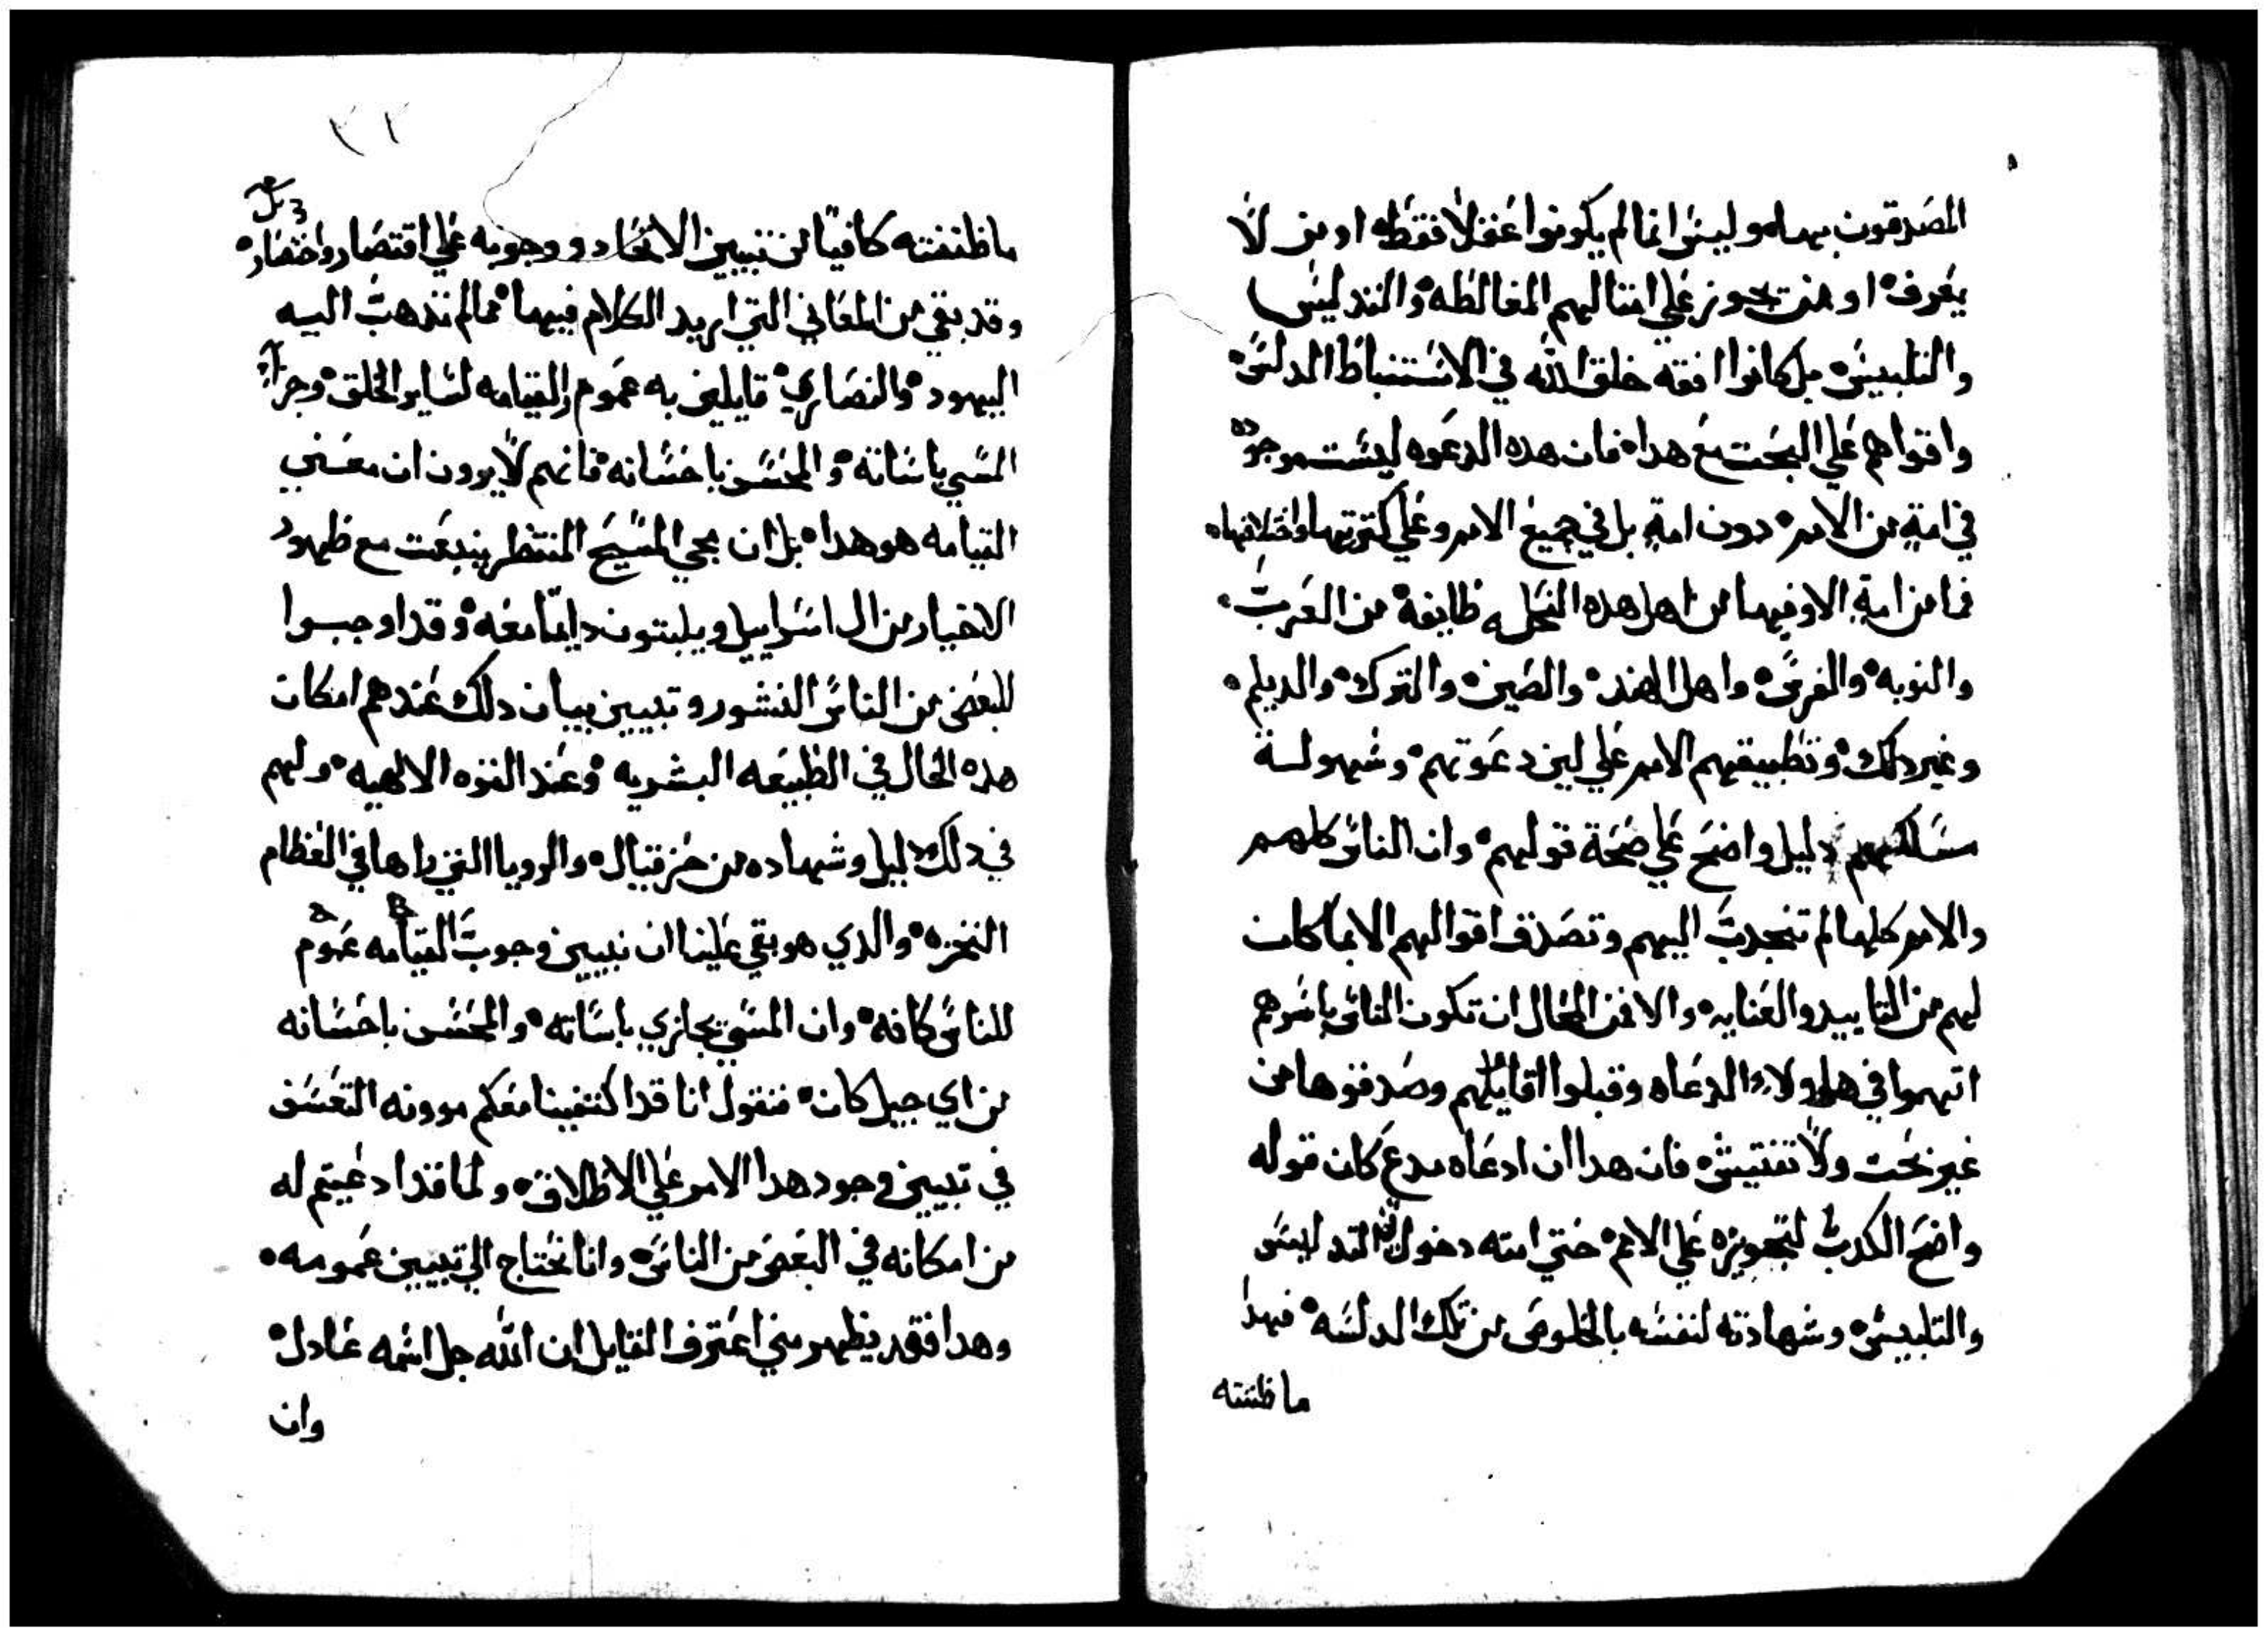 المصدقون بها وليس انما لم يكونوا غفلا فقط او من لا
يعرف او ممن تجوز علي امثالهم المغالطه والتدليس
والتلبيس بل كانوا افقه خلق الله في الاستنباط الدلس
واقواهم علي البحت مع هدا فان هده الدعوه ليست موجوده
في امة من الامم دون امة بل في جميع الامم وعلي كترتها واختلافها
فما من امة الا وفيها من اهل هده النحله طايفة من العرب
والنوبه والفرس واهل الهند والصين والترك والديلم
وغير دلك وتطبيقهم الامم علي لين دعوتهم وسهولة
مسالكهم دليل واضح علي صحة قولهم وان الناس كلهم
والامم كلها لم تنجدب اليهم وتصدق اقوالهم الا بما كان
لهم من التاييد والعنايه والا فمن المحال ان تكون الناس باسرهم
اتهموا في هاولاء الدعاه وقبلوا اقايلهم وصدقوها من
غير بحت ولا تفتيش فان هدا ان ادعاه مدع كان قوله
واضح الكدب لتجويزه علي الامم حتي امته دخول التدليس
والتلبيس وشهادته لنفسه بالخلوص من تلك الدلسه فهدا
ما ظننته
٢٢
ما ظننته كافيا من تبيين الاتحاد ووجوبه علي اقتصار واختصار
وقد بقي من المعاني التي اريد الكلام فيها مما لم تدهب اليه
اليهود والنصاري قايلين به عموم القيامه لساير الخلق وجزاء
المسي باساته والمحسن باحسانه فانهم لا يرون ان معني
القيامه هو هدا بل ان مجي المسيح المنتظر ينبعت مع ظهوره
الاخيار من ال اسراييل ويلبتون دايما معه وقد اوجبوا
لبعض من الناس النشور وتبيين بيان دلك عندهم امكان
هده الحال في الطبيعه البشريه وعند القوه الالهيه ولهم
في دلك دليل وشهاده من حزقيال والرويا التي راها في العظام
النخره والدي هو بقي علينا ان نبيين وجوب القيامه عموم
للناس كافه وان المسي يجازي باساته والمحسن باحسانه
من اي جيل كان فنقول انا قد اكتفينا معكم موونه التعسف
في تبيين وجود هدا الامر علي الاطلاق ولما قد ادعيتم له
من امكانه في البعض من الناس وانا نحتاج الي تبيين عمومه
وهدا فقد يظهر متي اعترف القايل ان الله جل اسمه عادل
وان